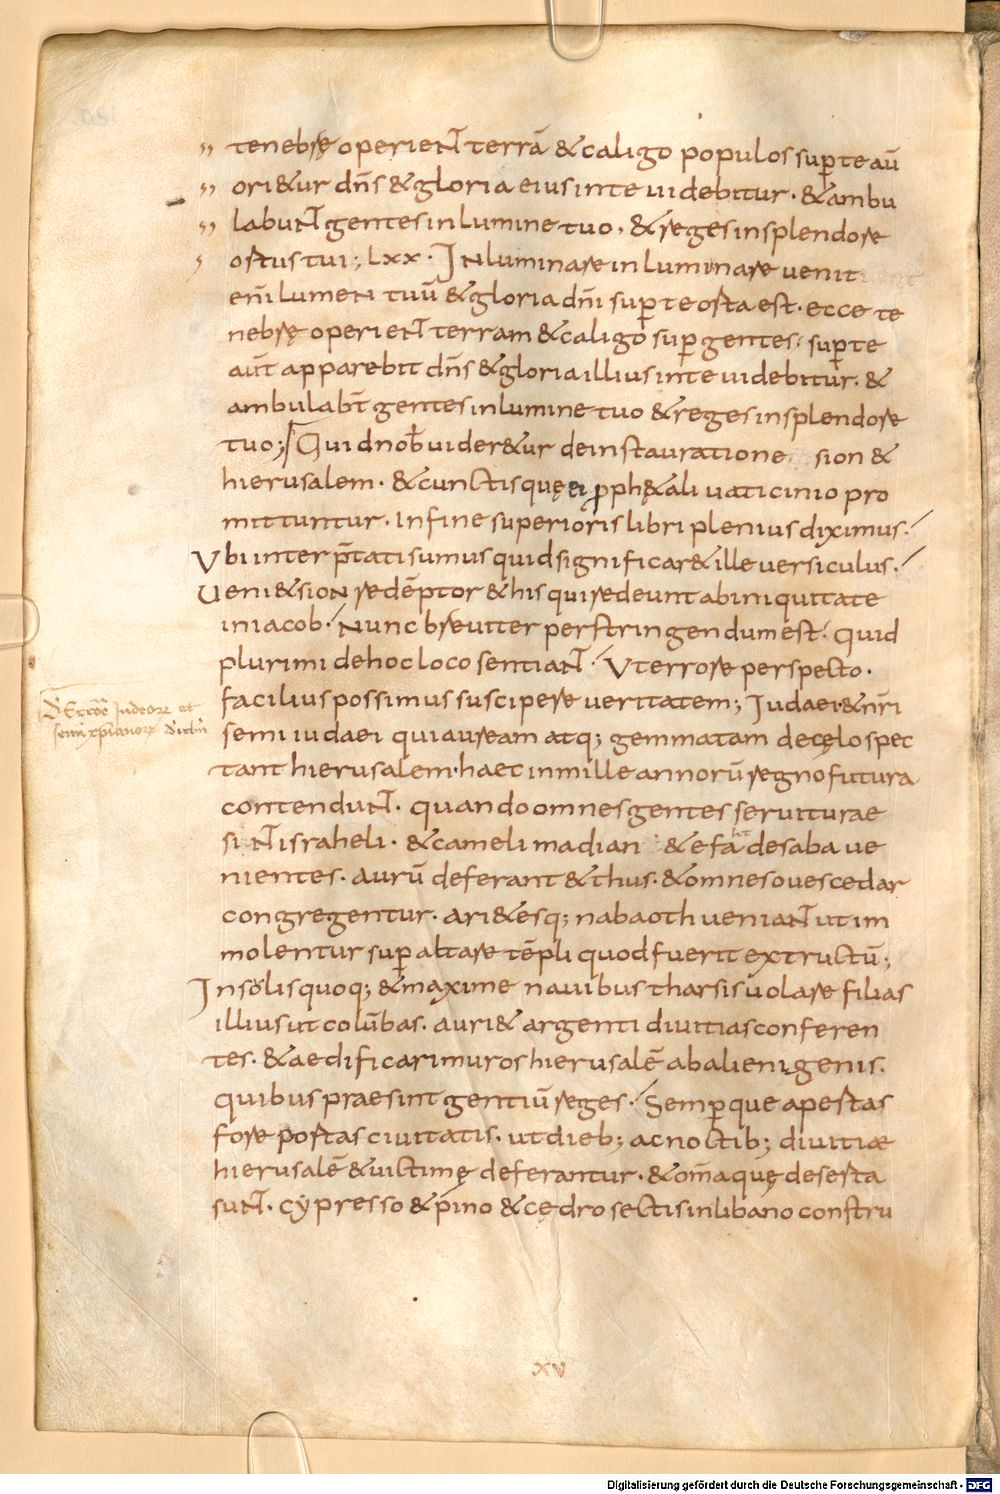 tenebrę operient terrā & caligo populos sup te aū
ori&ur dn̄s & gloria eius in te uidebitur. & ambu
labunt gentes in lumine tuo. & reges in splendore
ortus tui; lxx. In luminare inluminare uenit
eni̅ lumen tuū & gloria dn̄i sup te orta est. ecce te
nebrę operient terram & caligo sup gentes. sup te
aūt apparebit dn̄s & gloria illius in te uidebitur. &
ambulabt̄ gentes in lumine tuo & reges in splendore
tuo; Quid nob̄ uider&ur de instauratione sion &
hierusalem. & cunctis quę ei pph&ali uaticinio pro
mittuntur. In fine superioris libri plenius diximus.
Vbi interp̄tati sumus quid significar& ille uersiculus.
Ueni& sion redēptor & his qui redeunt ab iniquitate
in iacob. Nunc breuiter perstringendum est. quid
plurimi de hoc loco sentiant. Vt errore perspecto.
facilius possimus suscipere ueritatem; Iudaei & nr̄i
semi iudaei qui auream atq; gemmatam de cęlo spec
tant hierusalem. haec in mille annorū regno futura
contendunt. quando omnes gentes seruiturae
sint israheli. & cameli madian & efa de saba ue
nientes. aurū deferant & thus. & omnes oues cedar
congregentur. ari&esq; nabaoth ueniant ut im
molentur sup altare tēpli quod fuerit extructū;
Insulis quoq; & maxime nauibus tharsis uolare filias
illius ut colūbas. auri & argenti diuitias conferen
tes. & aedificari muros hierusalē ab alienigenis.
quibus praesint gentiū reges. Semp que apertas
fore portas ciuitatis. ut dieb; ac noctib; diuitiæ
hierusalē & uictimę deferantur. & om̄a quę deserta
sunt. cypresso & pino & cędro sectis in libano constru
xv
Digitalisierung gefördert durch die Deutsche Forschungsgemeinschaft - DFG